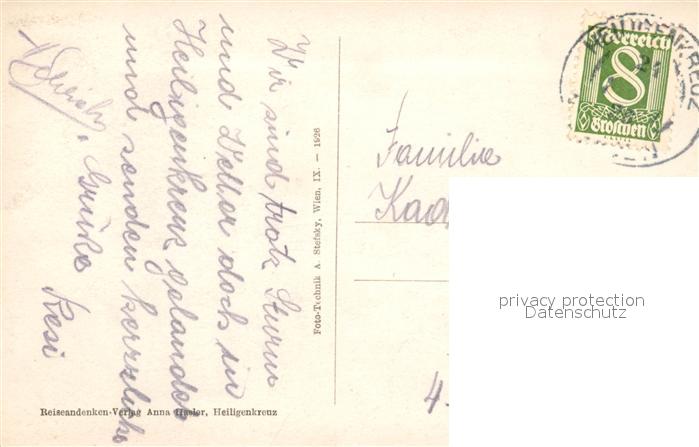 Wir sind trotz Sturm
und Wetter doch in
Heiligenkreuz gelandet
und senden herzliche
Grüße
Resi
Foto-Technik A. Stefsky, Wien, IX. — 1926
Reiseandenken-Verlag Anna Hasler, Heiligenkreuz
Familie
HEILIGENKREUZ
Österreich
8
Groschen
privacy protection
Datenschutz
4.